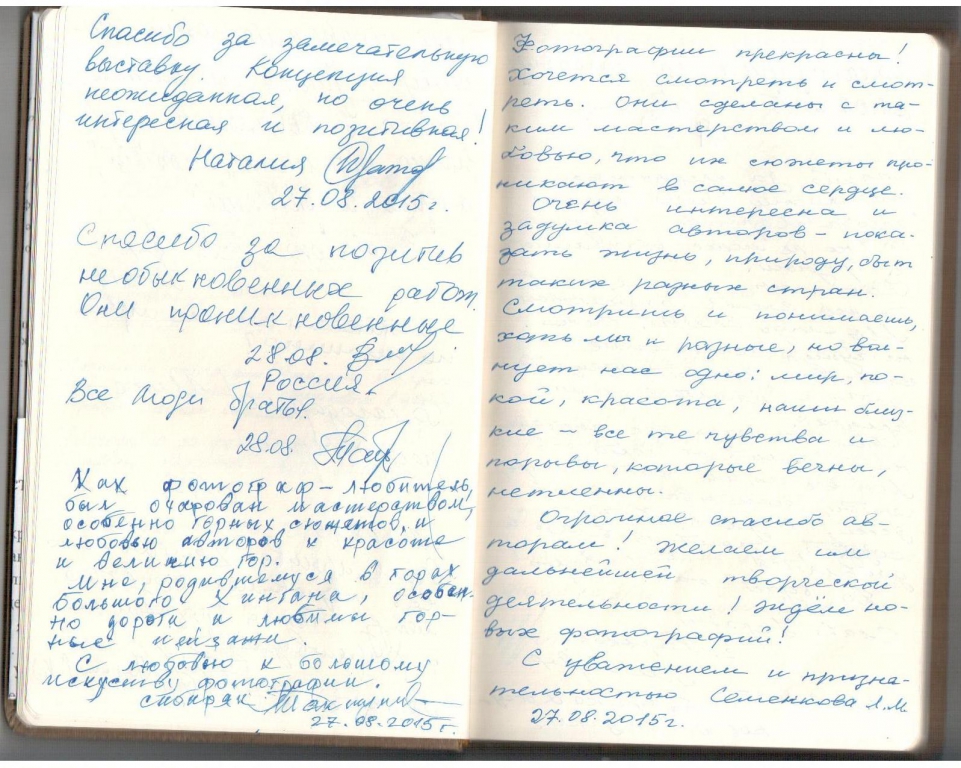 Спасибо за замечательную
выставку. Концепция
неожиданная, но очень
интересная и позитивная!
Наталия
27.08.2015г.
Спасибо за позитив
необыкновенных работ.
Они проникновенные
28.08.
Россия.
Все люди братья.
28.08.
Как фотограф-любитель,
был очарован мастерством,
особенно горных сюжетов, и
любовью авторов к красоте
и величию гор.
Мне, родившемуся в горах
Большого Хингана, особен-
но дороги и любимы гор-
ные пейзажи.
С любовью к большому
искусству фотографии.
27.08.2015г.
Фотографии прекрасны!
Хочется смотреть и смот-
реть. Они сделаны с та-
ким мастерством и лю-
бовью, что их сюжеты про-
никают в самое сердце.
Очень интересна и
задумка авторов – пока-
зать жизнь, природу, быт
таких разных стран.
Смотришь и понимаешь,
хоть мы и разные, но вол-
нует нас одно: мир, по-
кой, красота, наши близ-
кие – все те чувства и
порывы, которые вечны,
нетленны.
Огромное спасибо ав-
торам! Желаем им
дальнейшей творческой
деятельности! Ждём но-
вых фотографий!
С уважением и призна-
тельностью Семенкова Л.М.
27.08.2015г.